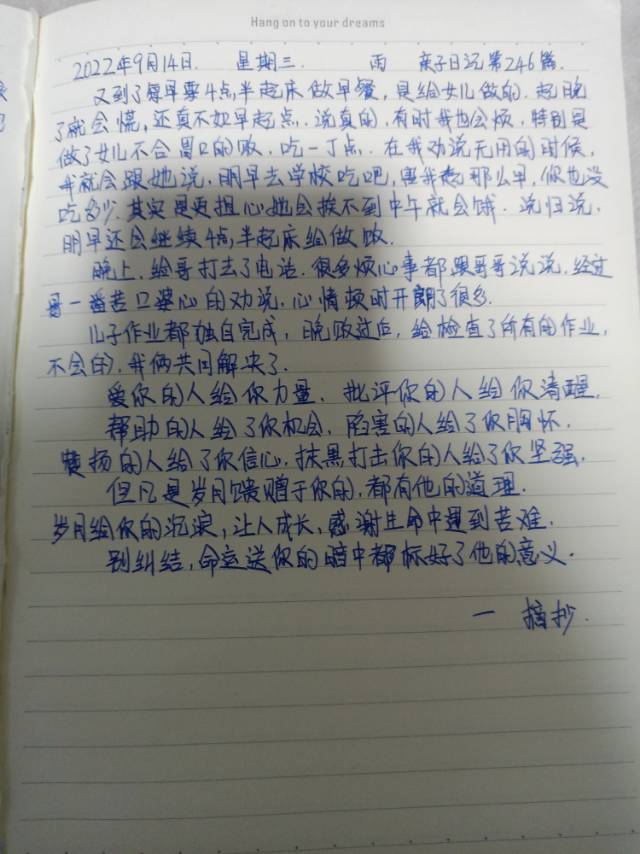 Hang on to your dreams
2022年9月14日. 星期三. 雨 亲子日记第246篇.
又到了每早要4点半起床做早餐,是给女儿做的.起晚
了就会慌,还真不如早起点.说真的,有时我也会烦,特别是
做了女儿不合胃口的饭,吃一丁点.在我劝说无用的时候,
我就会跟她说,明早去学校吃吧,害我起那么早,你也没
吃多少.其实是更担心她会挨不到中午就会饿.说归说,
明早还会继续4点半起床给做饭.
晚上,给哥打去了电话.很多烦心事都跟哥哥说说,经过
哥一番苦口婆心的劝说,心情顿时开朗了很多.
儿子作业都独自完成,晚饭过后,给检查了所有的作业,
不会的,我俩共同解决了.
爱你的人给你力量,批评你的人给你清醒,
帮助的人给了你机会,陷害的人给了你胸怀,
赞扬的人给了你信心,抹黑打击你的人给了你坚强.
但凡是岁月馈赠于你的,都有他的道理.
岁月给你的沉浪,让人成长,感谢生命中遇到苦难.
别纠结,命运送你的暗中都标好了他的意义.
一 摘抄.